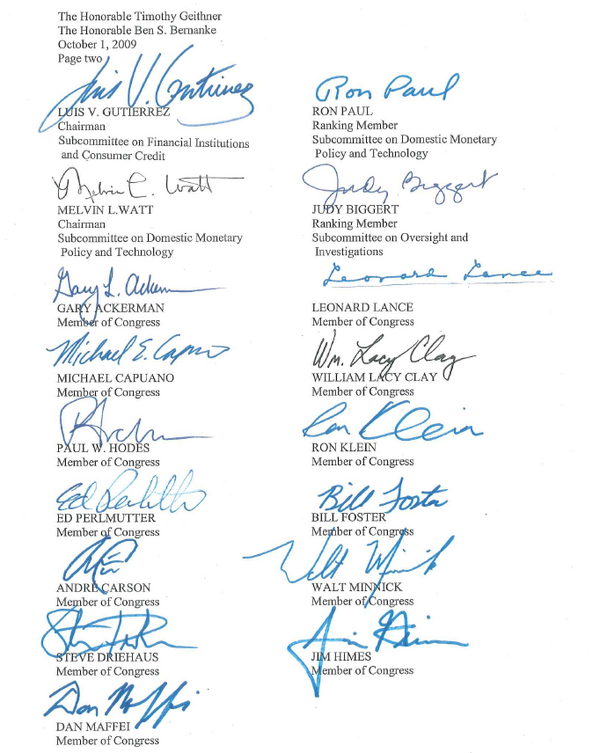 The Honorable Timothy Geithner
The Honorable Ben S. Bernanke
October 1, 2009
Page two
Luis V. Gutierrez
LUIS V. GUTIERREZ
Chairman
Subcommittee on Financial Institutions
and Consumer Credit
Ron Paul
RON PAUL
Ranking Member
Subcommittee on Domestic Monetary
Policy and Technology
Melvin L. Watt
MELVIN L.WATT
Chairman
Subcommittee on Domestic Monetary
Policy and Technology
Judy Biggert
JUDY BIGGERT
Ranking Member
Subcommittee on Oversight and
Investigations
Gary L. Ackerman
GARY ACKERMAN
Member of Congress
Leonard Lance
LEONARD LANCE
Member of Congress
Michael E. Capuano
MICHAEL CAPUANO
Member of Congress
Wm. Lacy Clay
WILLIAM LACY CLAY
Member of Congress
PAUL W. HODES
Member of Congress
Ron Klein
RON KLEIN
Member of Congress
Ed Perlmutter
ED PERLMUTTER
Member of Congress
Bill Foster
BILL FOSTER
Member of Congress
ANDRÉ CARSON
Member of Congress
Walt Minnick
WALT MINNICK
Member of Congress
STEVE DRIEHAUS
Member of Congress
Jim Himes
JIM HIMES
Member of Congress
Dan Maffei
DAN MAFFEI
Member of Congress